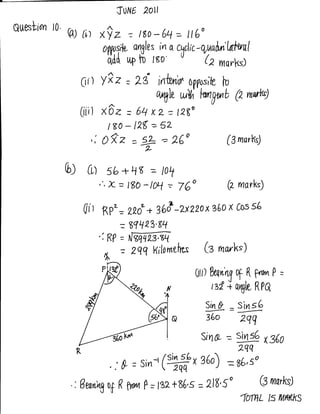 JUNE 2011
Question 10. (a) (i) XŶZ = 180 - 64 = 116°
opposite angles in a cyclic-quadrilateral
add up to 180° (2 marks)
(ii) YX̂Z = 23° interior opposite to
angle with tangent (2 marks)
(iii) XÔZ = 64 x 2 = 128°
180 - 128 = 52
∴ OX̂Z = 52/2 = 26° (3 marks)
(b) (i) 56 + 48 = 104
∴ x = 180 - 104 = 76° (2 marks)
(ii) RP² = 220² + 360² - 2x220x360x Cos 56
= 89423.84
∴ RP = √89423.84
= 299 Kilometres (3 marks)
N
P 132°
θ
220km
N
48°
56°
Q
299km
360 km
R
(iii) Bearing of R from P =
132 + angle RPQ
Sin θ/360 = Sin 56/299
Sin θ = Sin 56/299 x 360
∴ θ = Sin⁻¹ (Sin 56/299 x 360) = 86.5°
∴ Bearing of R from P = 132 + 86.5 = 218.5° (3 marks)
TOTAL 15 MARKS